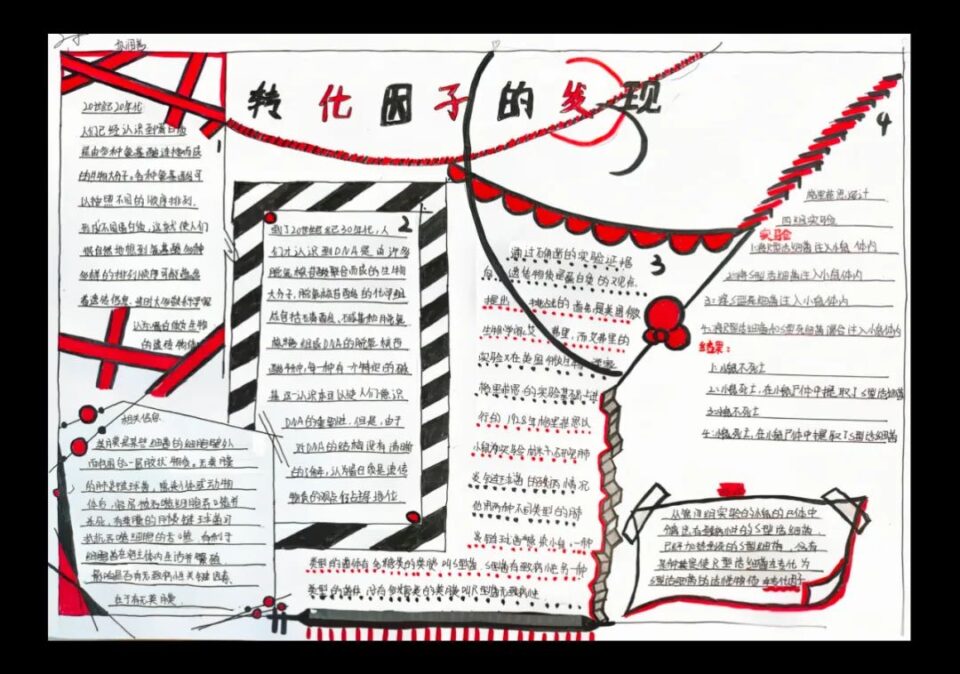 转化因子的发现
1
20世纪20年代
人们已经认识到蛋白质
是由多种氨基酸连接而成
的生物大分子,各种氨基酸可
以按照不同的顺序排列,
形成不同蛋白质,这就使人们
很自然地想到氨基酸多种
多样的排列顺序可能蕴含
着遗传信息,当时大多数科学家
认为蛋白质是生物
的遗传物质
相关信息
荚膜是某些细菌的细胞壁外
面包围的一层胶状物质,无荚膜
的肺炎链球菌,感染人体或动物体
体后,容易被吞噬细胞吞噬并
杀灭,有荚膜的肺炎链球菌可
抵抗吞噬细胞的吞噬,有利于
细菌在宿主体内生活并繁殖
2
到了20世纪30年代,人
们才认识到DNA是由许多
脱氧核苷酸聚合而成的生物
大分子,脱氧核苷酸的化学组
成包括磷酸、碱基和脱氧核
糖,组成DNA的脱氧核苷
酸有四种,每一种有一个特定的碱
基,这一认识本可以使人们意识
DNA的重要性,但是,由于
对DNA的结构没有清晰
的了解,认为蛋白质是遗传
物质的观点仍占主导地位
3
通过不确凿的实验证据
向遗传物质是蛋白质的观点
提出挑战的首先是美国微
生物学家艾弗里,而艾弗里的
实验又在英国微生物学家
格里菲思的实验基础上进
行的,1928年格里菲思以
小鼠为实验材料,研究肺
炎链球菌的致病情况
他用两种不同类型的肺
炎链球菌感染小鼠,一种
类型的菌体有多糖类的荚膜叫S型菌,S型菌有致病性,另一种
类型的菌体没有多糖类的荚膜叫R型菌无致病性
4
格里菲思设计
四组实验
实验
1:将R型活细菌注入小鼠体内
2:将S型活细菌注入小鼠体内
3:将S型死细菌注入小鼠体内
4:将R型活细菌和S型死细菌混合注入小鼠体内
结果:
1:小鼠不死亡
2:小鼠死亡,在小鼠尸体中提取了S型活细菌
3:小鼠不死亡
4:小鼠死亡,在小鼠尸体中提取了S型活细菌
从第四组实验的小鼠的尸体中
分离出有致病性的S型活细菌,